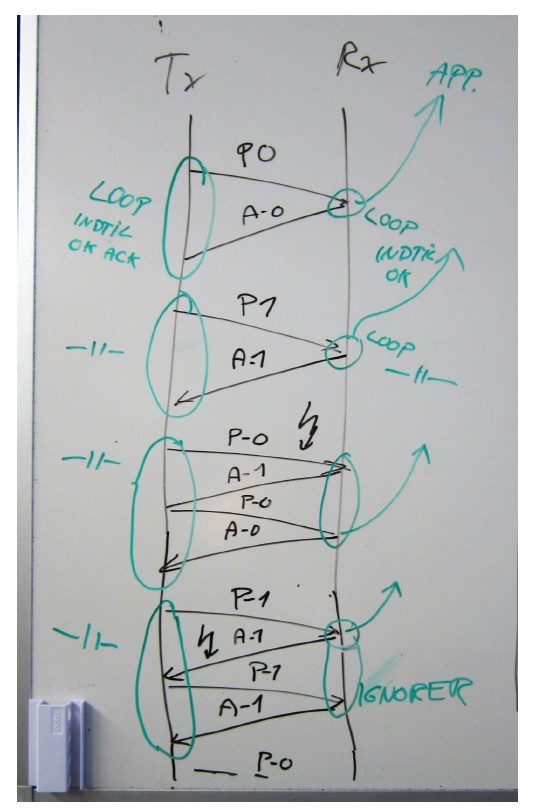 Tx
Rx
APP.
P0
A-0
LOOP
INDTIL
OK ACK
LOOP
INDTIL
OK
P1
A-1
—||—
LOOP
—||—
P-0
A-1
P-0
A-0
—||—
P-1
A-1
P-1
A-1
—||—
IGNORER
P-0